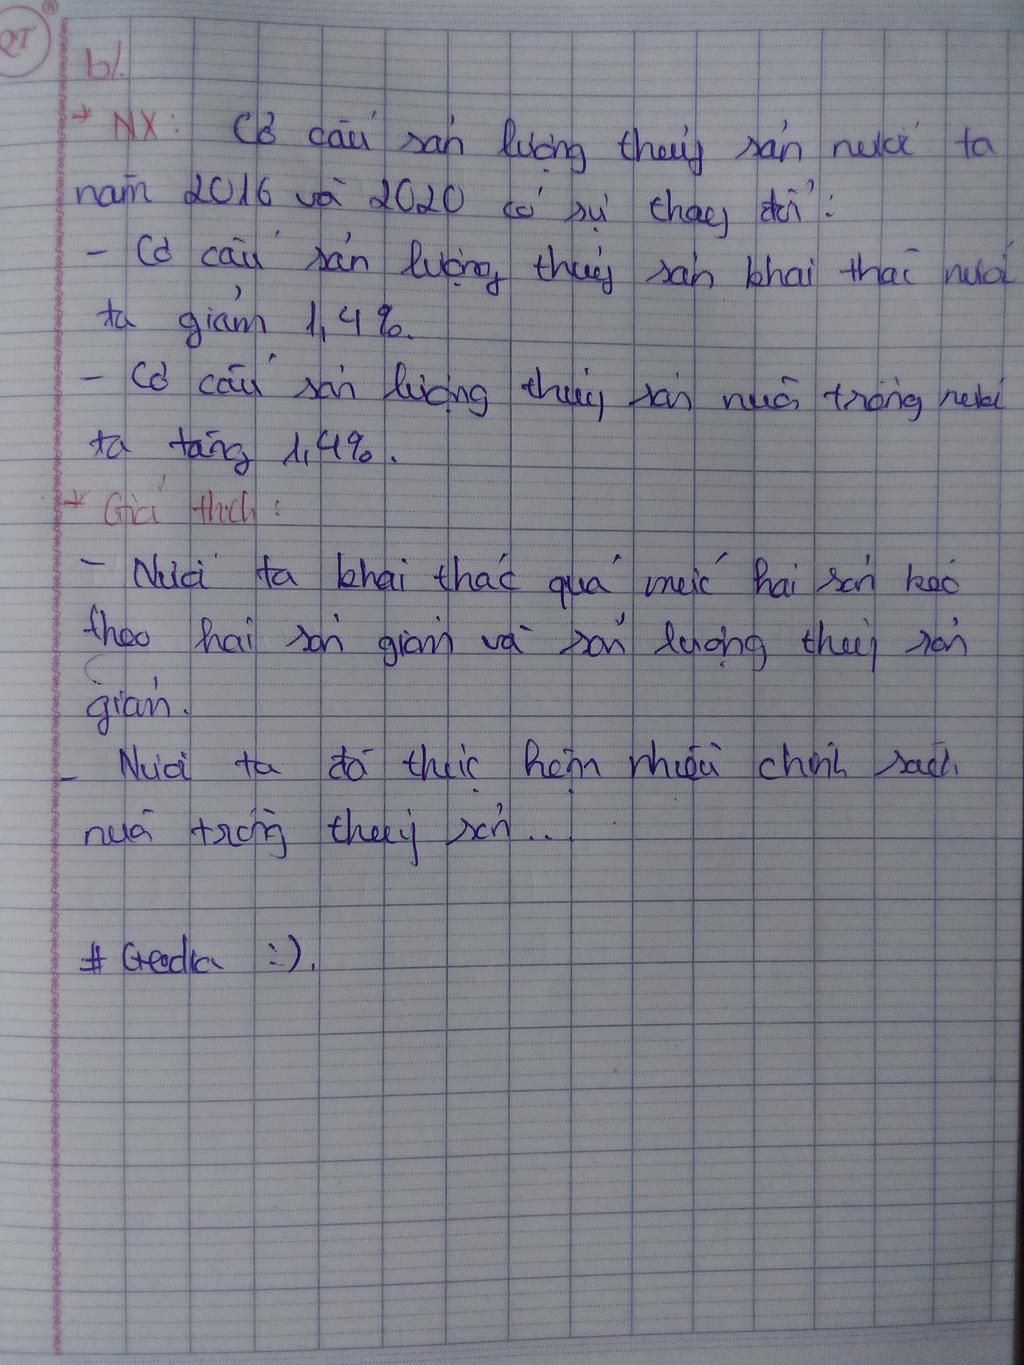 b/.
→ NX: Cơ cấu sản lượng thuỷ sản nước ta
năm 2016 và 2020 có sự thay đổi:
- Cơ cấu sản lượng thuỷ sản khai thác nước
ta giảm 1,4%.
- Cơ cấu sản lượng thuỷ sản nuôi trồng nước
ta tăng 1,4%.
→ Giải thích:
- Nước ta khai thác quá mức hải sản kéo
theo hải sản giảm và sản lượng thuỷ sản
giảm.
- Nước ta đã thực hiện nhiều chính sách
nuôi trồng thuỷ sản...
:).